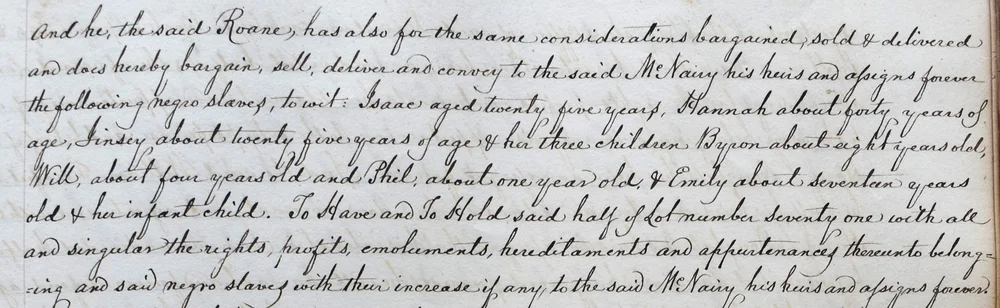 And he, the said Roane, has also for the same considerations bargained, sold & delivered
and does hereby bargain, sell, deliver and convey to the said McNairy his heirs and assigns forever
the following negro slaves, to wit: Isaac aged twenty five years, Hannah about forty years of
age, Jinsey about twenty five years of age & her three children Byron about eight years old,
Will, about four years old and Phil, about one year old, & Emily about seventeen years
old & her infant child. To Have and To Hold said half of Lot number seventy one with all
and singular the rights, profits, emoluments, hereditaments and appurtenances thereunto belong=
=ing and said negro slaves with their increase if any, to the said McNairy his heirs and assigns forever.